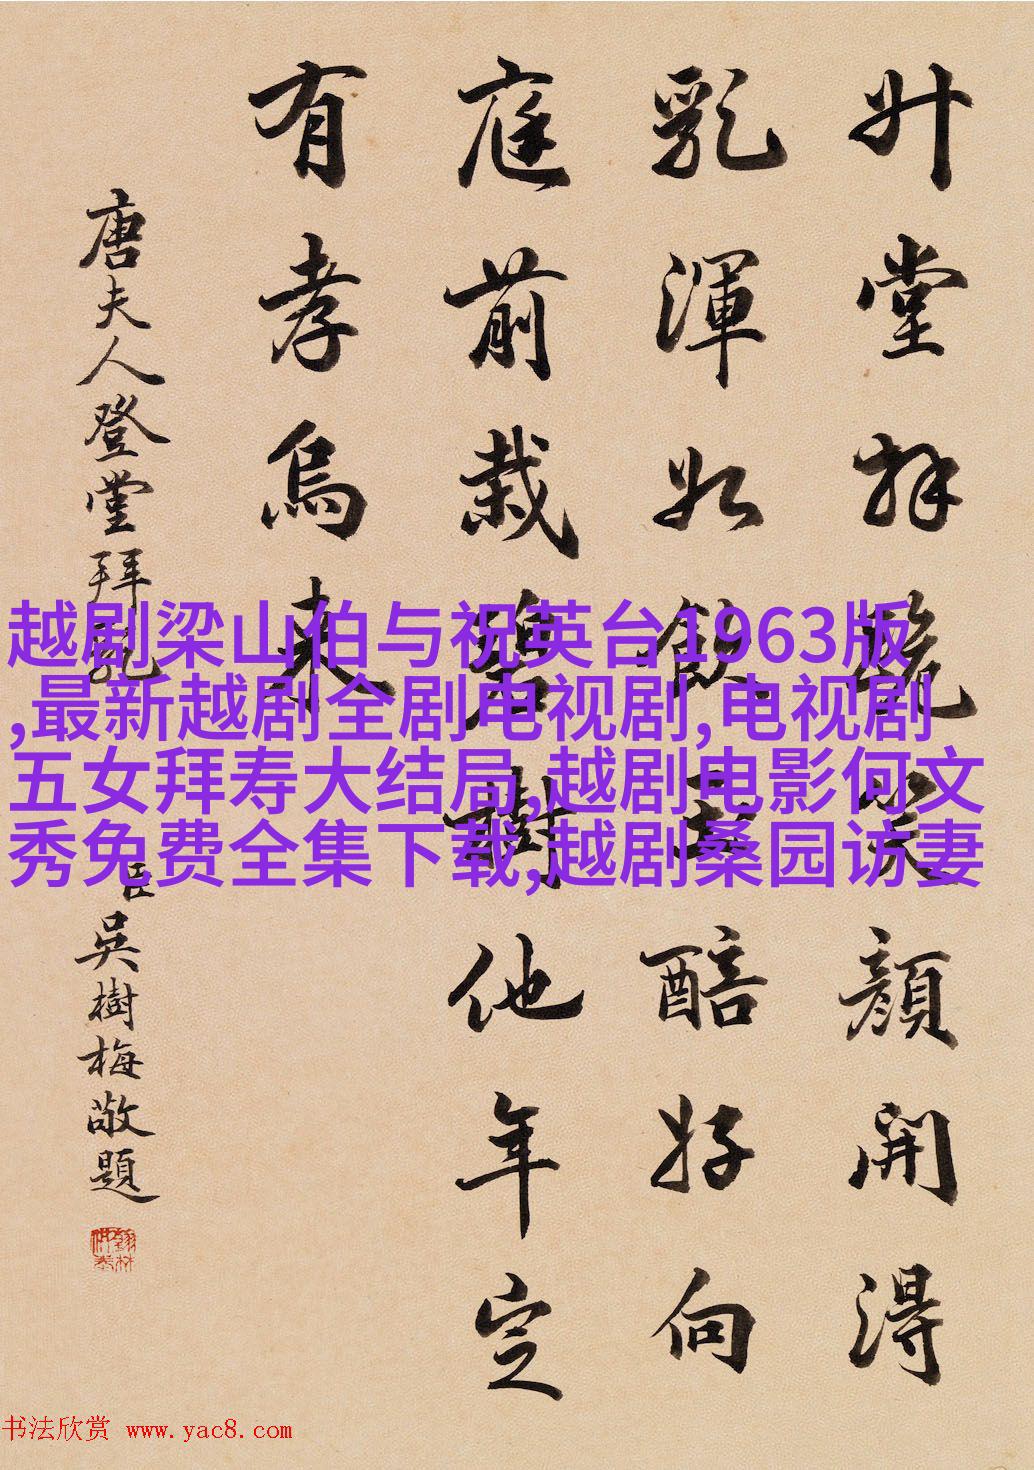 升堂拜罷笑顏開得
乳渾如飲玉醅好向
庭前栽碧樹他年定
有孝烏來
唐夫人登堂拜乳 臣吳樹梅敬題
越剧梁山伯与祝英台1963版
,最新越剧全剧电视剧,电视剧
五女拜寿大结局,越剧电影何文
秀免费全集下载,越剧桑园访妻
书法欣赏 www.yac8.com